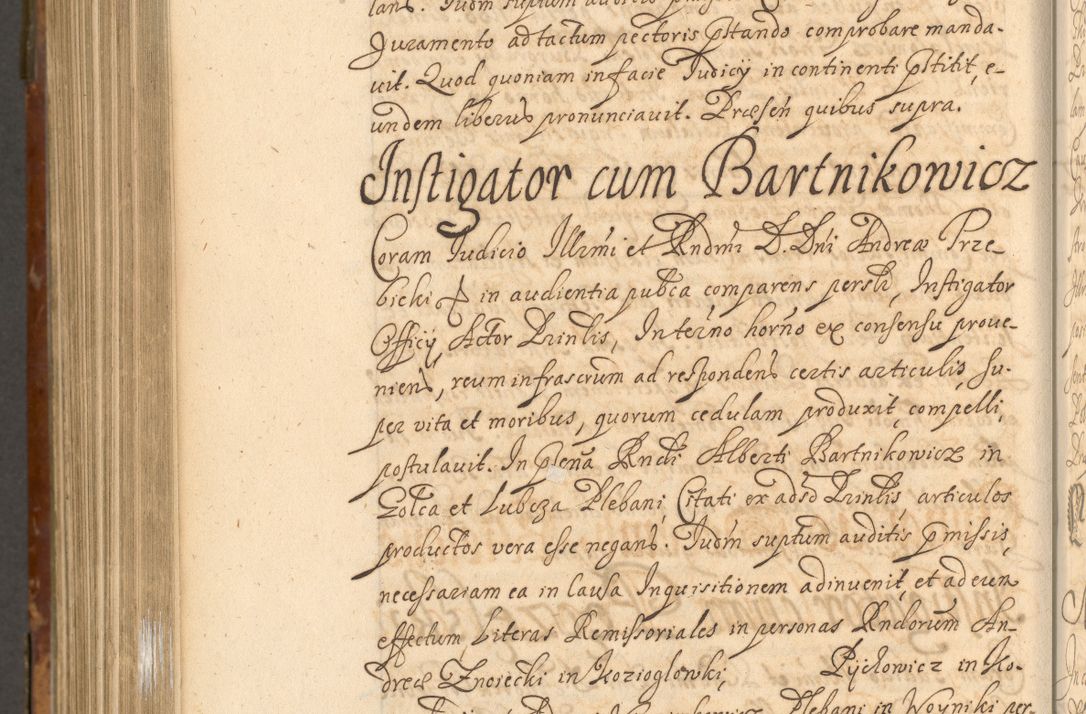 Juramento ad tactum pectoris pstando comprobare manda-
uit. Quod quoniam in facie Judicij in continenti pstitit, e-
undem liberus pronunciauit. Præsen quibus supra.
Instigator cum Bartnikowicz
Coram Judicio Illrmi et Rndmi D. Dni Andreæ Prze-
bicki in audientia pubca comparens persli, Instigator
Officij, Actor Prinlis, In terno horno ex consensu proue-
niens, reum infrascrum ad respondens certis articulis, su-
per vita et moribus, quorum cedulam produxit, compelli
postulauit. In psena Rndi Alberti Bartnikowicz in
Golca et Lubcza Plebani, Citati ex adso Prinlis, articulos
productos vera esse negans. Judm suptum auditis pmissis,
necessariam ea in causa Inquisitionem adinuenit, et ad eum
effectum Literas Remissoriales in personas Rndorum An-
dreæ Znoiecki in Kozioglowki, Pyclowicz in Ko-
Plebani in Woyniki per